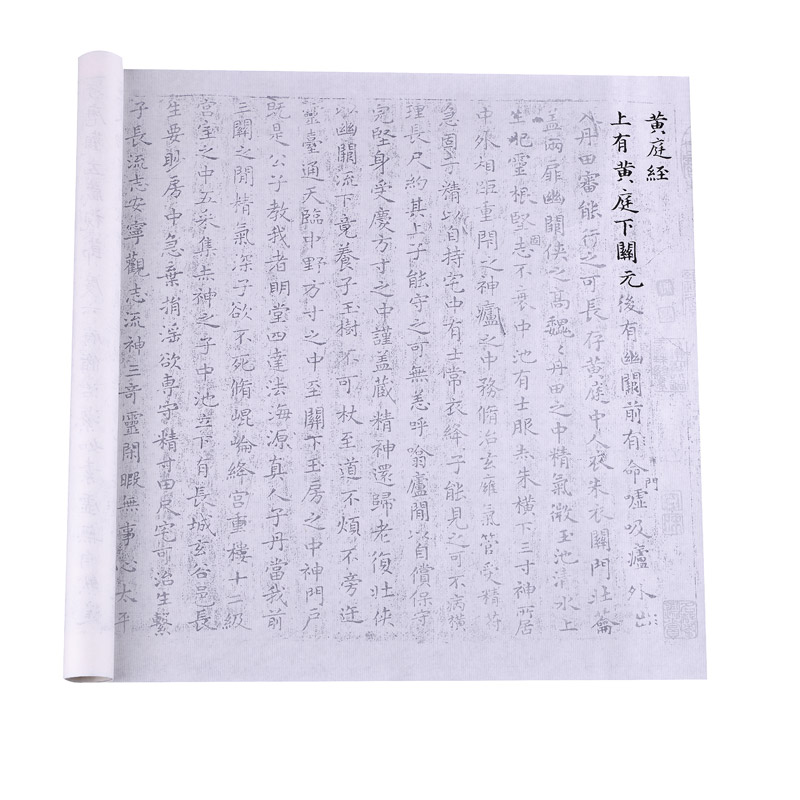 黃庭經
上有黃庭下關元後有幽闕前有命門噓吸廬外出
入丹田審能行之可長存黃庭中人衣朱衣關門壯籥
蓋兩扉幽闕俠之高魏〻丹田之中精氣微玉池清水上
生肥靈根堅志不衰中池有士服赤朱橫下三寸神所居
中外相距重閉之神廬之中務脩治玄癰氣管受精符
急固子精以自持宅中有士常衣絳子能見之可不病橫
理長尺約其上子能守之可無恙呼噏廬間以自償保守
完堅身受慶方寸之中謹蓋藏精神還歸老復壯俠
以幽闕流下竟養子玉樹不可杖至道不煩不旁迕
靈臺通天臨中野方寸之中至關下玉房之中神門戶
既是公子教我者明堂四達法海源真人子丹當我前
三關之間精氣深子欲不死脩崐崘絳宮重樓十二級
宮室之中五采集赤神之子中池立下有長城玄谷邑長
生要眇房中急棄捐淫欲專守精寸田尺宅可治生繫
子長流志安寧觀志流神三奇靈閑暇無事心太平